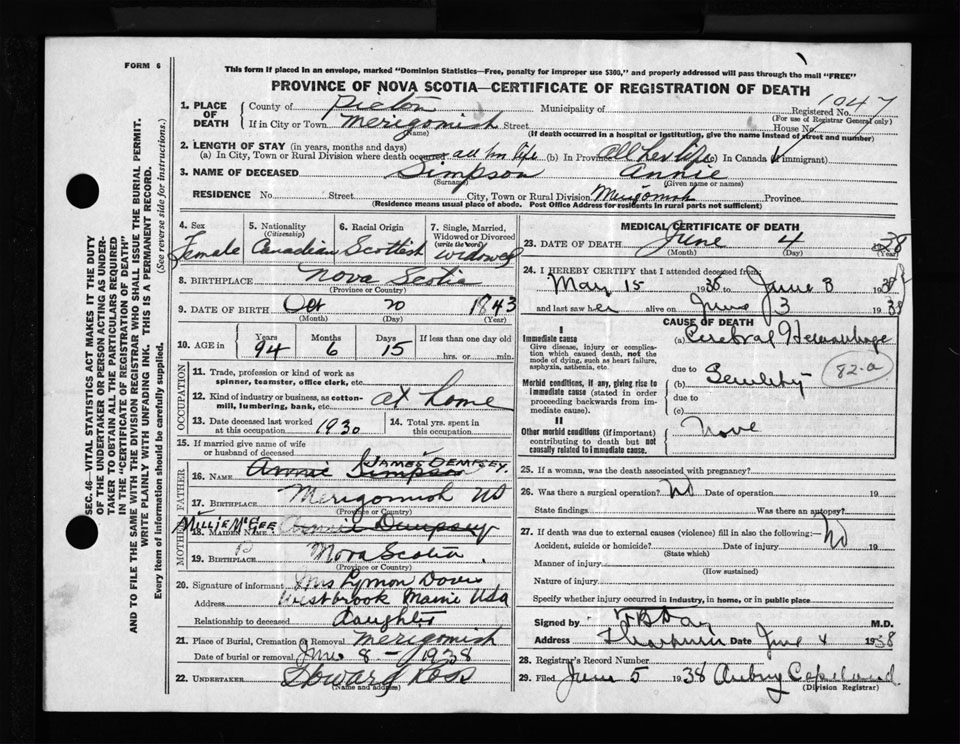 FORM 6
This form if placed in an envelope, marked "Dominion Statistics—Free, penalty for improper use $300," and properly addressed will pass through the mail "FREE"
PROVINCE OF NOVA SCOTIA—CERTIFICATE OF REGISTRATION OF DEATH
1. PLACE OF DEATH
County of Pictou Municipality of Registered No. 1047
(For use of Registrar General only)
If in City or Town Merigomish Street House No.
(Name) (If death occurred in a hospital or institution, give the name instead of street and number)
2. LENGTH OF STAY (in years, months and days)
(a) In City, Town or Rural Division where death occurred all her life (b) In Province all her life (c) In Canada (if immigrant)
3. NAME OF DECEASED Simpson Annie
(Surname) (Given name or names)
RESIDENCE No. Street City, Town or Rural Division Merigomish Province
(Residence means usual place of abode. Post Office Address for residents in rural parts not sufficient)
4. Sex Female
5. Nationality (Citizenship) Canadian
6. Racial Origin Scottish
7. Single, Married, Widowed or Divorced (write the word) widowed
8. BIRTHPLACE Nova Scotia
(Province or Country)
9. DATE OF BIRTH Oct 20 1843
(Month) (Day) (Year)
10. AGE in Years 94 Months 6 Days 15 If less than one day old
hrs. or min.
OCCUPATION
11. Trade, profession or kind of work as spinner, teamster, office clerk, etc.
12. Kind of industry or business, as cotton-mill, lumbering, bank, etc. at home
13. Date deceased last worked at this occupation 1930
14. Total yrs. spent in this occupation
15. If married give name of wife or husband of deceased
FATHER
16. NAME Annie Simpson JAMES DEMPSEY.
17. BIRTHPLACE Merigomish NS
(Province or Country)
MOTHER
MILLIE McGEE
18. MAIDEN NAME Annie Dempsey
19. BIRTHPLACE Nova Scotia
(Province or Country)
20. Signature of informant Mrs Lymon
Address Westbrook Maine Usa
Relationship to deceased daughter
21. Place of Burial, Cremation or Removal Merigomish
Date of burial or removal June 8 - 1938
22. UNDERTAKER Edward Ross
(Name and address)
MEDICAL CERTIFICATE OF DEATH
23. DATE OF DEATH June 4 1938
(Month) (Day) (Year)
24. I HEREBY CERTIFY that I attended deceased from
May 15 1938 to June 3 1938
and last saw her alive on June 3 1938
CAUSE OF DEATH
I
Immediate cause
Give disease, injury or complication which caused death, not the mode of dying, such as heart failure, asphyxia, asthenia, etc.
(a) Cerebral Hemorrhage
due to
Morbid conditions, if any, giving rise to immediate cause (stated in order proceeding backwards from immediate cause).
(b) Senility 82-a
due to
(c)
II
Other morbid conditions (if important) contributing to death but not causally related to immediate cause.
None
25. If a woman, was the death associated with pregnancy?
26. Was there a surgical operation? No Date of operation 19
State findings Was there an autopsy?
27. If death was due to external causes (violence) fill in also the following:— No
Accident, suicide or homicide? Date of injury 19
(State which)
Manner of injury
(How sustained)
Nature of injury
Specify whether injury occurred in industry, in home, or in public place
Signed by M.D.
Address Thorburn Date June 4 1938
28. Registrar's Record Number
29. Filed June 5 1938 Aubrey Copeland
(Division Registrar)
SEC. 46—VITAL STATISTICS ACT MAKES IT THE DUTY
OF THE UNDERTAKER OR PERSON ACTING AS UNDER-
TAKER TO OBTAIN ALL THE PARTICULARS REQUIRED
IN THE "CERTIFICATE OF REGISTRATION OF DEATH"
AND TO FILE THE SAME WITH THE DIVISION REGISTRAR WHO SHALL ISSUE THE BURIAL PERMIT.
WRITE PLAINLY WITH UNFADING INK. THIS IS A PERMANENT RECORD.
Every item of information should be carefully supplied. (See reverse side for instructions.)